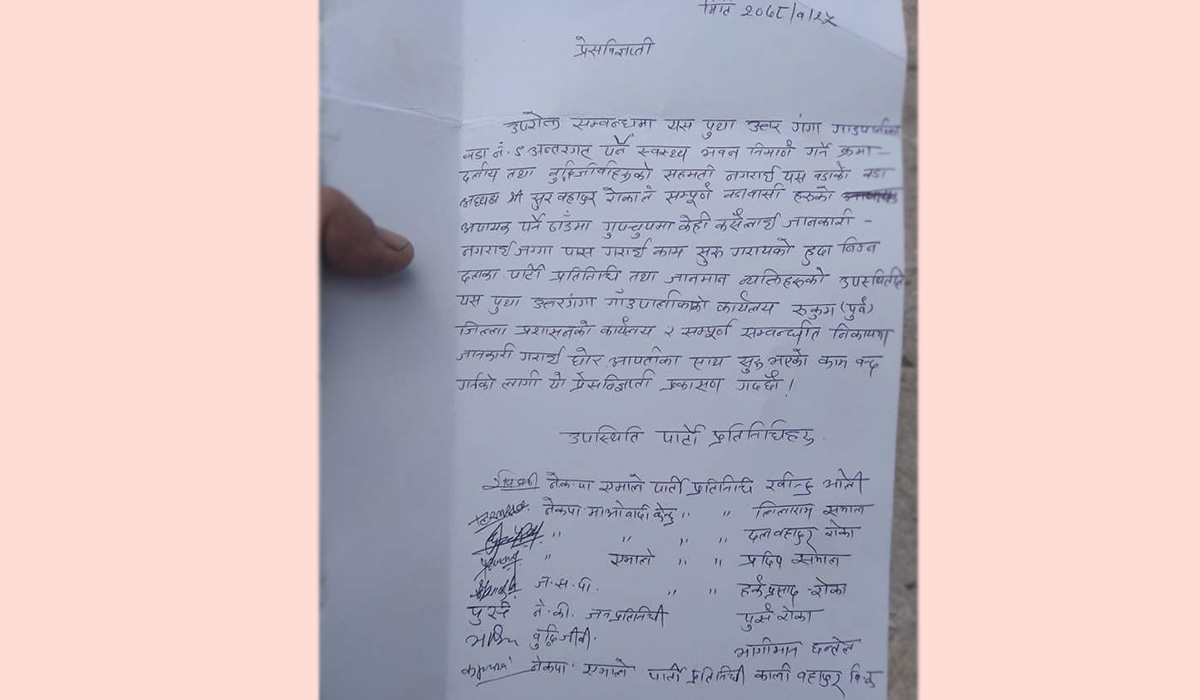 मिति २०७८/१/२५
प्रेसविज्ञप्ती
उपरोक्त सम्वन्धमा यस पुथा उत्तर गंगा गाउपालिका
वडा नं. ८ अन्तरगत पर्ने स्वास्थ्य भवन निमार्ण गर्ने क्रमा-
दलीय तथा वुद्धिजिविहरुको सहमती नगराई यस वडाको वडा
अध्यक्ष श्री सुर वहादुर रोकाले सम्पूर्ण वडावासी हरुको
अपायक पर्ने ठाउँमा गुपचुपमा केही कसैलाई जानकारी -
नगराई जग्गा पास गराई काम सुरु गरायको हुदा निम्न
दलका पार्टी प्रतिनिधि तथा जानमान व्यक्तिहरुको उपस्थितिमा
यस पुथा उत्तरगंगा गाँउपालिकाको कार्यलय रुकुम (पुर्व)
जिल्ला प्रशासनको कार्यलय र सम्पूर्ण सम्वन्धीत निकायमा
जानकारी गराई घोर आपतीका साथ सुरु भएको काम वन्द
गर्नको लागी यो प्रेसविज्ञप्ती प्रकासण गर्दछौ !
उपस्थिति पार्टी प्रतिनिधिहरु
नेकपा एमाले पार्टी प्रतिनिधि रवीन्द्र ओली
नेकपा माओवादी केन्द्र " " लिलाराम समाल
" " " " दलवहादुर रोका
" एमाले " " प्रदिप समाल
ज. स. पा. " " हर्क प्रसाद रोका
पुर्स ने. का. जनप्रतिनिधी पुर्स रोका
वुद्धिजीवी. भागीमान घन्तेल
नेकपा एमाले पार्टी प्रतिनिधी काली वहादुर